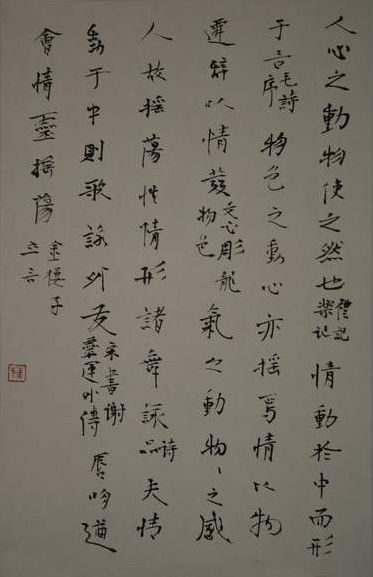 人心之動物使之然也禮記樂記情動於中而形
于言毛詩序物色之動心亦搖焉情以物
遷辭以情發文心彫龍物色氣之動物、之感
人故搖蕩性情形諸舞詠詩品夫情
動于中則歌詠外发宋書謝靈運外傳唇吻遒
會情靈搖蕩金樓子立言